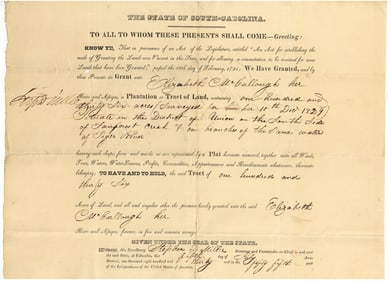 THE STATE OF SOUTH-CAROLINA.
TO ALL TO WHOM THESE PRESENTS SHALL COME—Greeting:
KNOW YE, That in pursuance of an Act of the Legislature, entitled "An Act for establishing the
mode of Granting the Lands now Vacant in this State, and for allowing a commutation to be received for some
Lands that have been Granted," passed the 19th day of February, 1791, We Have Granted, and by
these Presents do Grant unto Elizabeth McCullough her
Heirs and Assigns, a Plantation or Tract of Land, containing one hundred and
thirty Six acres Surveyed for her 11th Dec 1829
Situate in the District of Union on the South Side
of Fairforest Creek & on branches of the Same waters
of Tyger River
having such shape, form and marks as are represented by a Plat hereunto annexed, together with all Woods,
Trees, Waters, Water-Courses, Profits, Commodities, Appurtenances and Hereditaments whatsoever, thereunto
belonging. TO HAVE AND TO HOLD, the said Tract of one hundred and
thirty Six
Acres of Land, and all and singular other the premises hereby granted unto the said Elizabeth
McCullough her
Heirs and Assigns, forever, in free and common soccage.
GIVEN UNDER THE SEAL OF THE STATE.
WITNESS, his Excellency Stephen D. Miller Governor and Commander in Chief in and over
the said State, at Columbia, this day of
of the Independence of the United States of America. fifty fifth